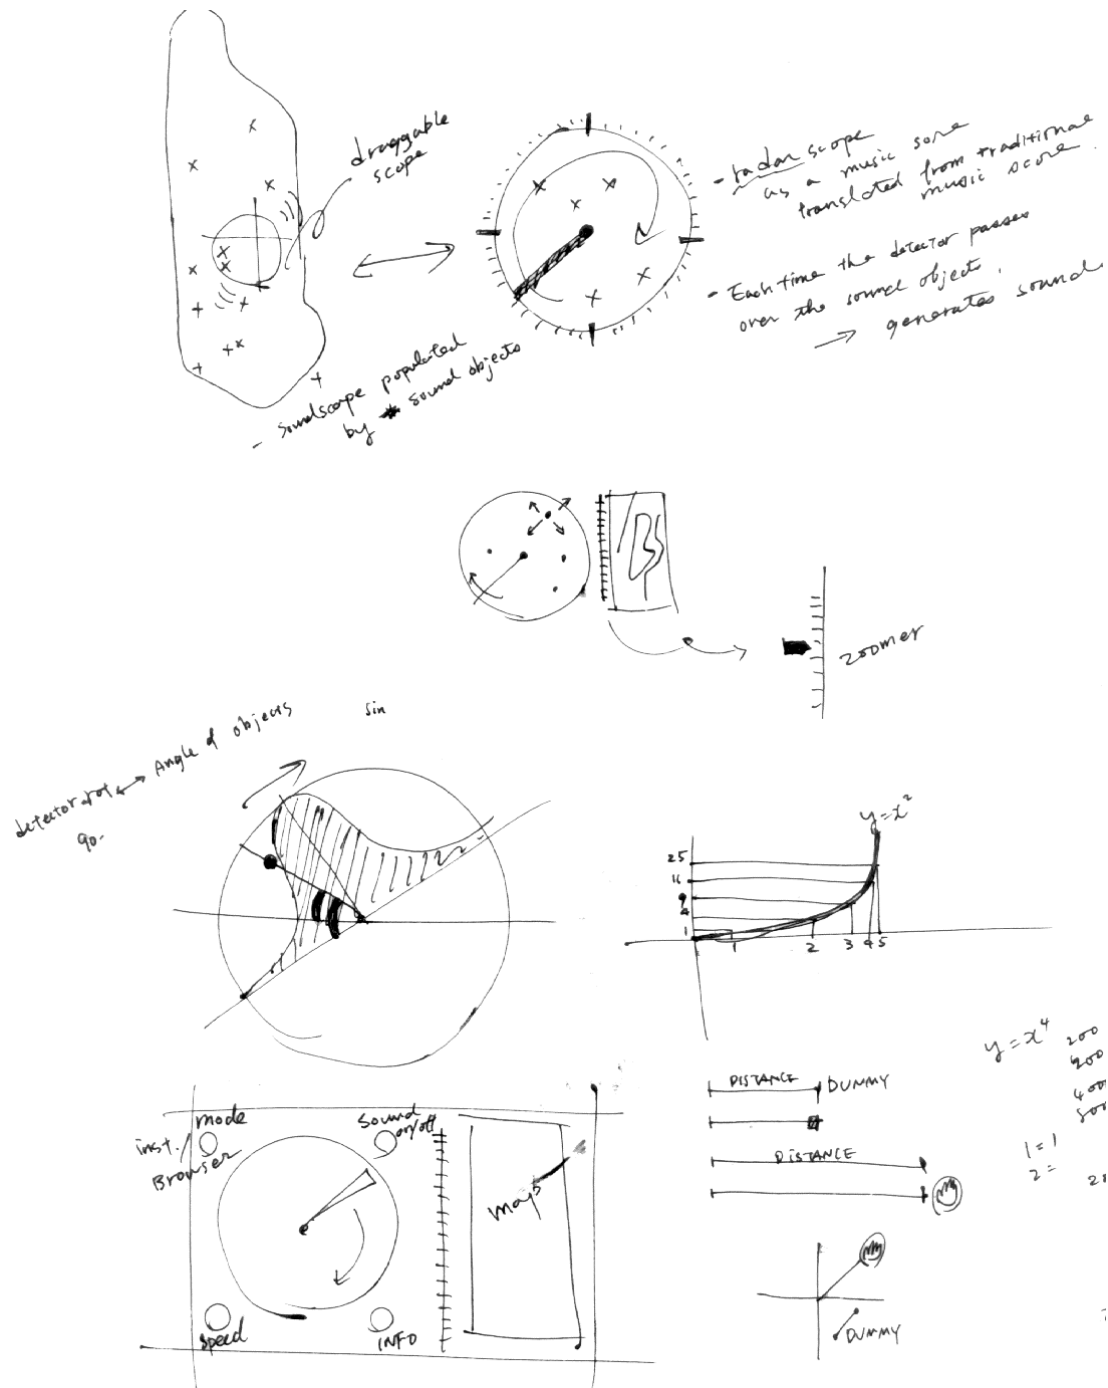 draggable
scope
- radar scope
as a music sore
translated from traditional
music score.
- Each time the detector passes
over the sound objects,
→ generates sound.
- Soundscape populated
by sound objects
zoomer
sin
detector rot ↔ Angle of objects
90-
y=x²
25
16
9
4
1
1 2 3 4 5
y=x⁴
200
400
1=1
2=
DISTANCE DUMMY
DISTANCE
DUMMY
mode
Sound
on/off
inst./
Browser
map
speed
INFO